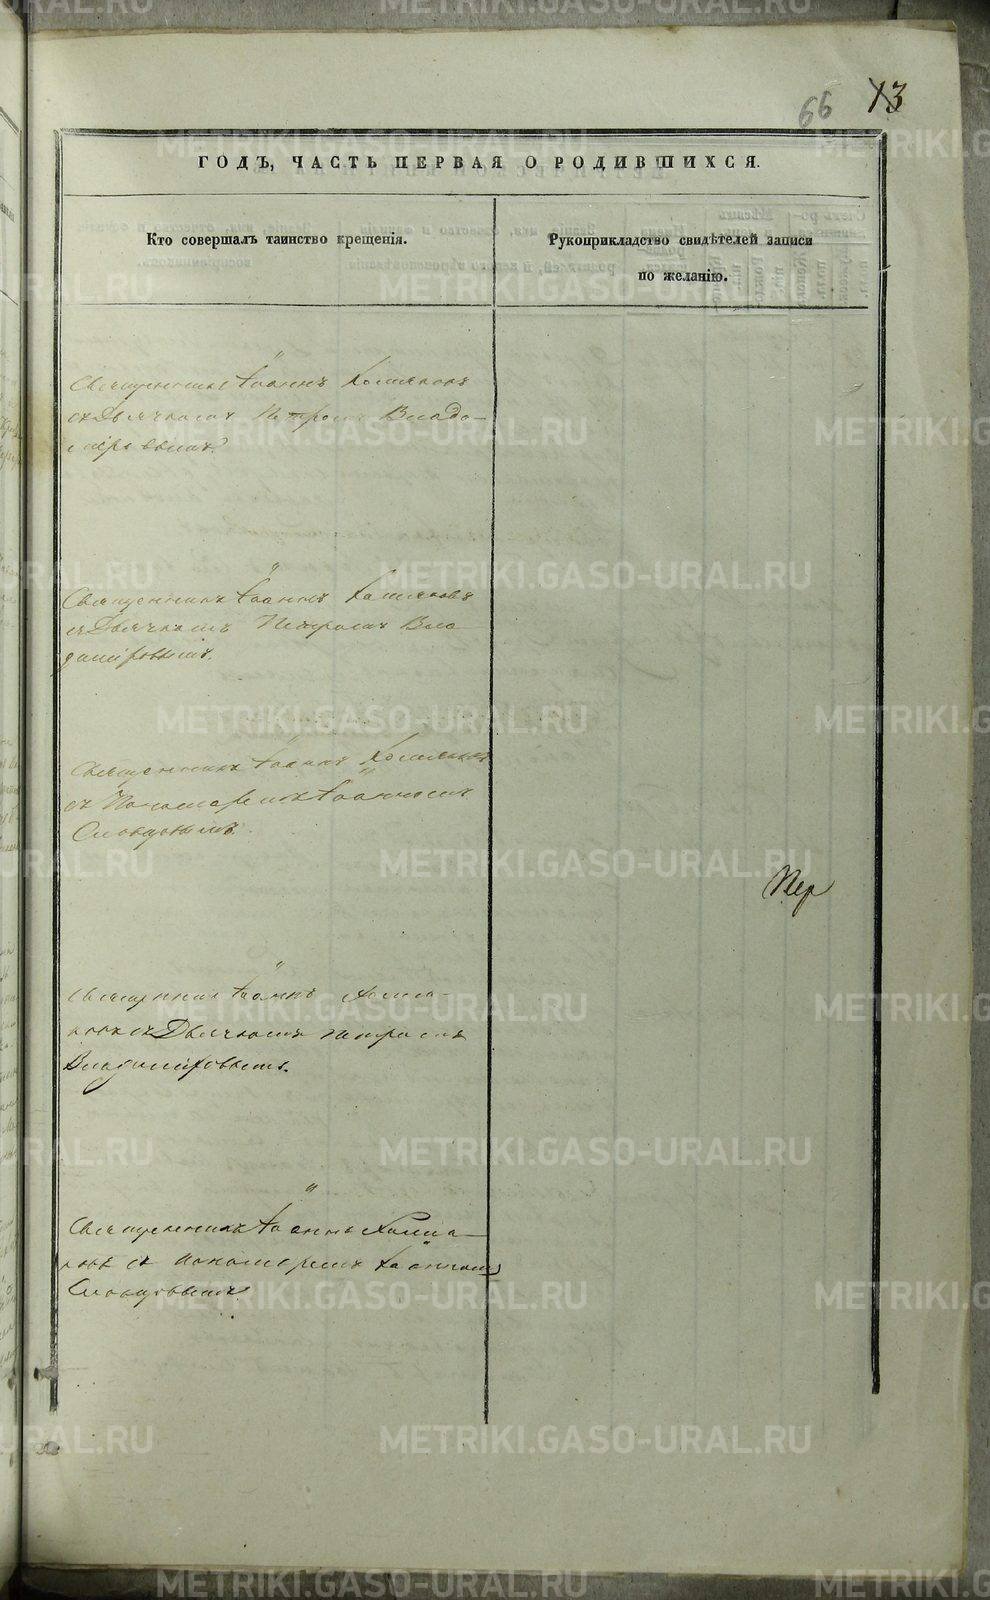 66 13
ГОДЪ, ЧАСТЬ ПЕРВАЯ О РОДИВШИХСЯ.
Кто совершалъ таинство крещенія.
Рукоприкладство свидѣтелей записи
по желанію.
Священникъ Іоаннъ Холмяковъ
съ Дьячкомъ Петромъ Владі-
міровымъ.
Священникъ Іоаннъ Холмяковъ
съ Дьячкомъ Петромъ Вла
диміровымъ.
Священникъ Іоаннъ Холмяковъ
съ Пономаремъ Іоанномъ
Словцовымъ.
Пер
Священникъ Іоаннъ Холмя-
ковъ съ Дьячкомъ Петромъ
Владиміровымъ.
Священникъ Іоаннъ Холмя-
ковъ съ пономаремъ Іоанномъ
Словцовымъ
METRIKI.GASO-URAL.RU